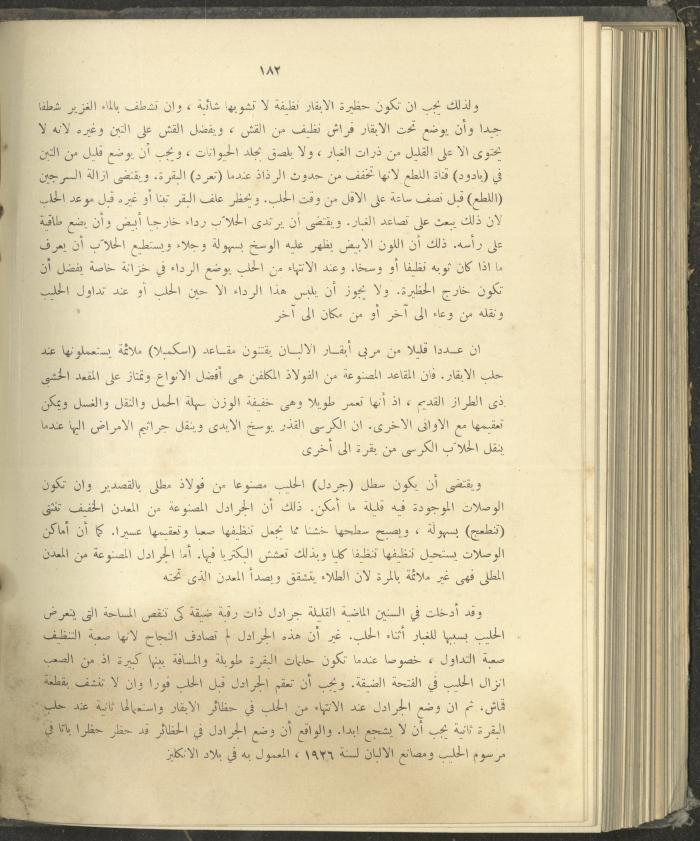 ١٨٢
ولذلك يجب ان تكون حظيرة الابقار نظيفة لا تشوبها شائبة ، وان تشطف بالماء الغزير شطفا
جيدا وأن يوضع تحت الابقار فراش نظيف من القش ، ويفضل القش على التبن وغيره لانه لا
يحتوى الا على القليل من ذرات الغبار ، ولا يلصق بجلد الحيوانات ، ويجب أن يوضع قليل من التبن
في (بادود) قناة اللطع لانها تخفف من حدوث الرذاذ عندما (تعرد) البقرة. ويقتضى ازالة السرجين
(اللطع) قبل نصف ساعة على الاقل من وقت الحلب. ويحظر علف البقر تبنا أو غيره قبل موعد الحلب
لان ذلك يبعث على تصاعد الغبار. ويقتضى أن يرتدى الحلاب رداء خارجيا أبيض وأن يضع طاقية
على رأسه. ذلك أن اللون الابيض يظهر عليه الوسخ بسهولة وجلاء ويستطيع الحلاب أن يعرف
ما اذا كان ثوبه نظيفا أو وسخا. وعند الانتهاء من الحلب يوضع الرداء في خزانة خاصة يفضل أن
تكون خارج الحظيرة. ولا يجوز أن يلبس هذا الرداء الا حين الحلب أو عند تداول الحليب
ونقله من وعاء الى آخر أو من مكان الى آخر
ان عــددا قليلا من مربى أبقــار الالبــان يقتنون مقــاعد (اسكملا) ملائمة يستعملونها عند
حلب الابقار. فان المقاعد المصنوعة من الفولاذ المكلفن هى أفضل الانواع وتمتاز على المقعد الخشبى
ذى الطراز القديم ، اذ أنها تعمر طويلا وهى خفيفة الوزن سهلة الحمل والنقل والغسل ويمكن
تعقيمها مع الاوانى الاخرى. ان الكرسى القذر يوسخ الايدى وينقل جراثيم الامراض اليها عندما
ينقل الحلاب الكرسى من بقرة الى أخرى
ويقتضى أن يكون سطل (جردل) الحليب مصنوعا من فولاذ مطلى بالقصدير وان تكون
الوصلات الموجودة فيه قليلة ما أمكن. ذلك أن الجرادل المصنوعة من المعدن الخفيف تنثنى
(تنطعج) بسهولة ، ويصبح سطحها خشنا مما يجعل تنظيفها صعبا وتعقيمها عسيرا. كما أن أماكن
الوصلات يستحيل تنظيفها تنظيفا كليا وبذلك تعشش البكتريا فيها. أما الجرادل المصنوعة من المعدن
المطلى فهى غير ملائمة بالمرة لان الطلاء يتشقق ويصدأ المعدن الذى تحته
وقد أدخلت في السنين الماضية القليلة جرادل ذات رقبة ضيقة كى تنقص المساحة التى يتعرض
الحليب بسببها للغبار أثناء الحلب. غير أن هذه الجرادل لم تصادف النجاح لانها صعبة التنظيف
صعبة التداول ، خصوصا عندما تكون حلمات البقرة طويلة والمسافة بينها كبيرة اذ من الصعب
انزال الحليب في الفتحة الضيقة. ويجب أن تعقم الجرادل قبل الحلب فورا وان لا تنشف بقطعة
قماش. ثم ان وضع الجرادل عند الانتهاء من الحلب في حظائر الابقار واستعمالها ثانية عند حلب
البقرة ثانية يجب أن لا يشجع ابدا. والواقع أن وضع الجرادل في الحظائر قد حظر حظرا باتا في
مرسوم الحليب ومصانع الالبان لسنة ١٩٢٦ ، المعمول به في بلاد الانكليز